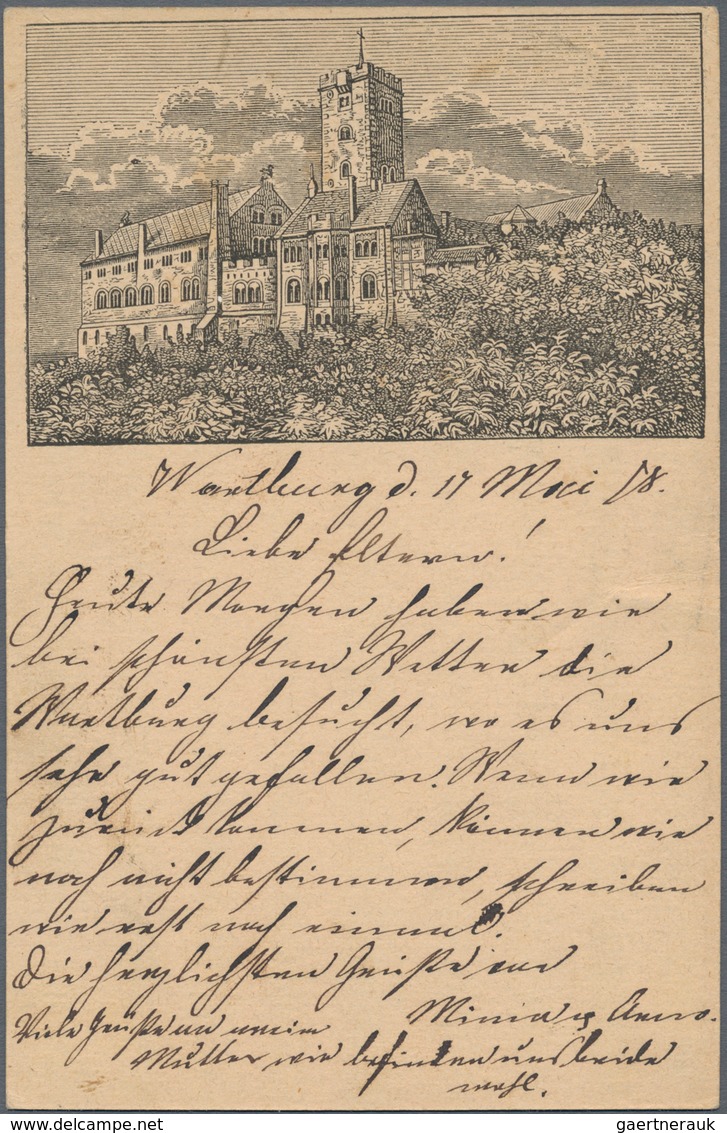 Wartburg d. 17 Mai 78.
Liebe Eltern!
Heute Morgen haben wir
bei schönsten Wetter die
Wartburg besucht, wo es uns
sehr gut gefallen. Wenn wir
zurück kommen, können wir
noch nicht bestimmen, schreiben
wir erst noch einmal.
Die herzlichsten Grüße an
Viele Grüße an meine
Minna & Arno.
Mutter wir befinden uns beide
wohl.
gaertnerauk @ delcampe.net